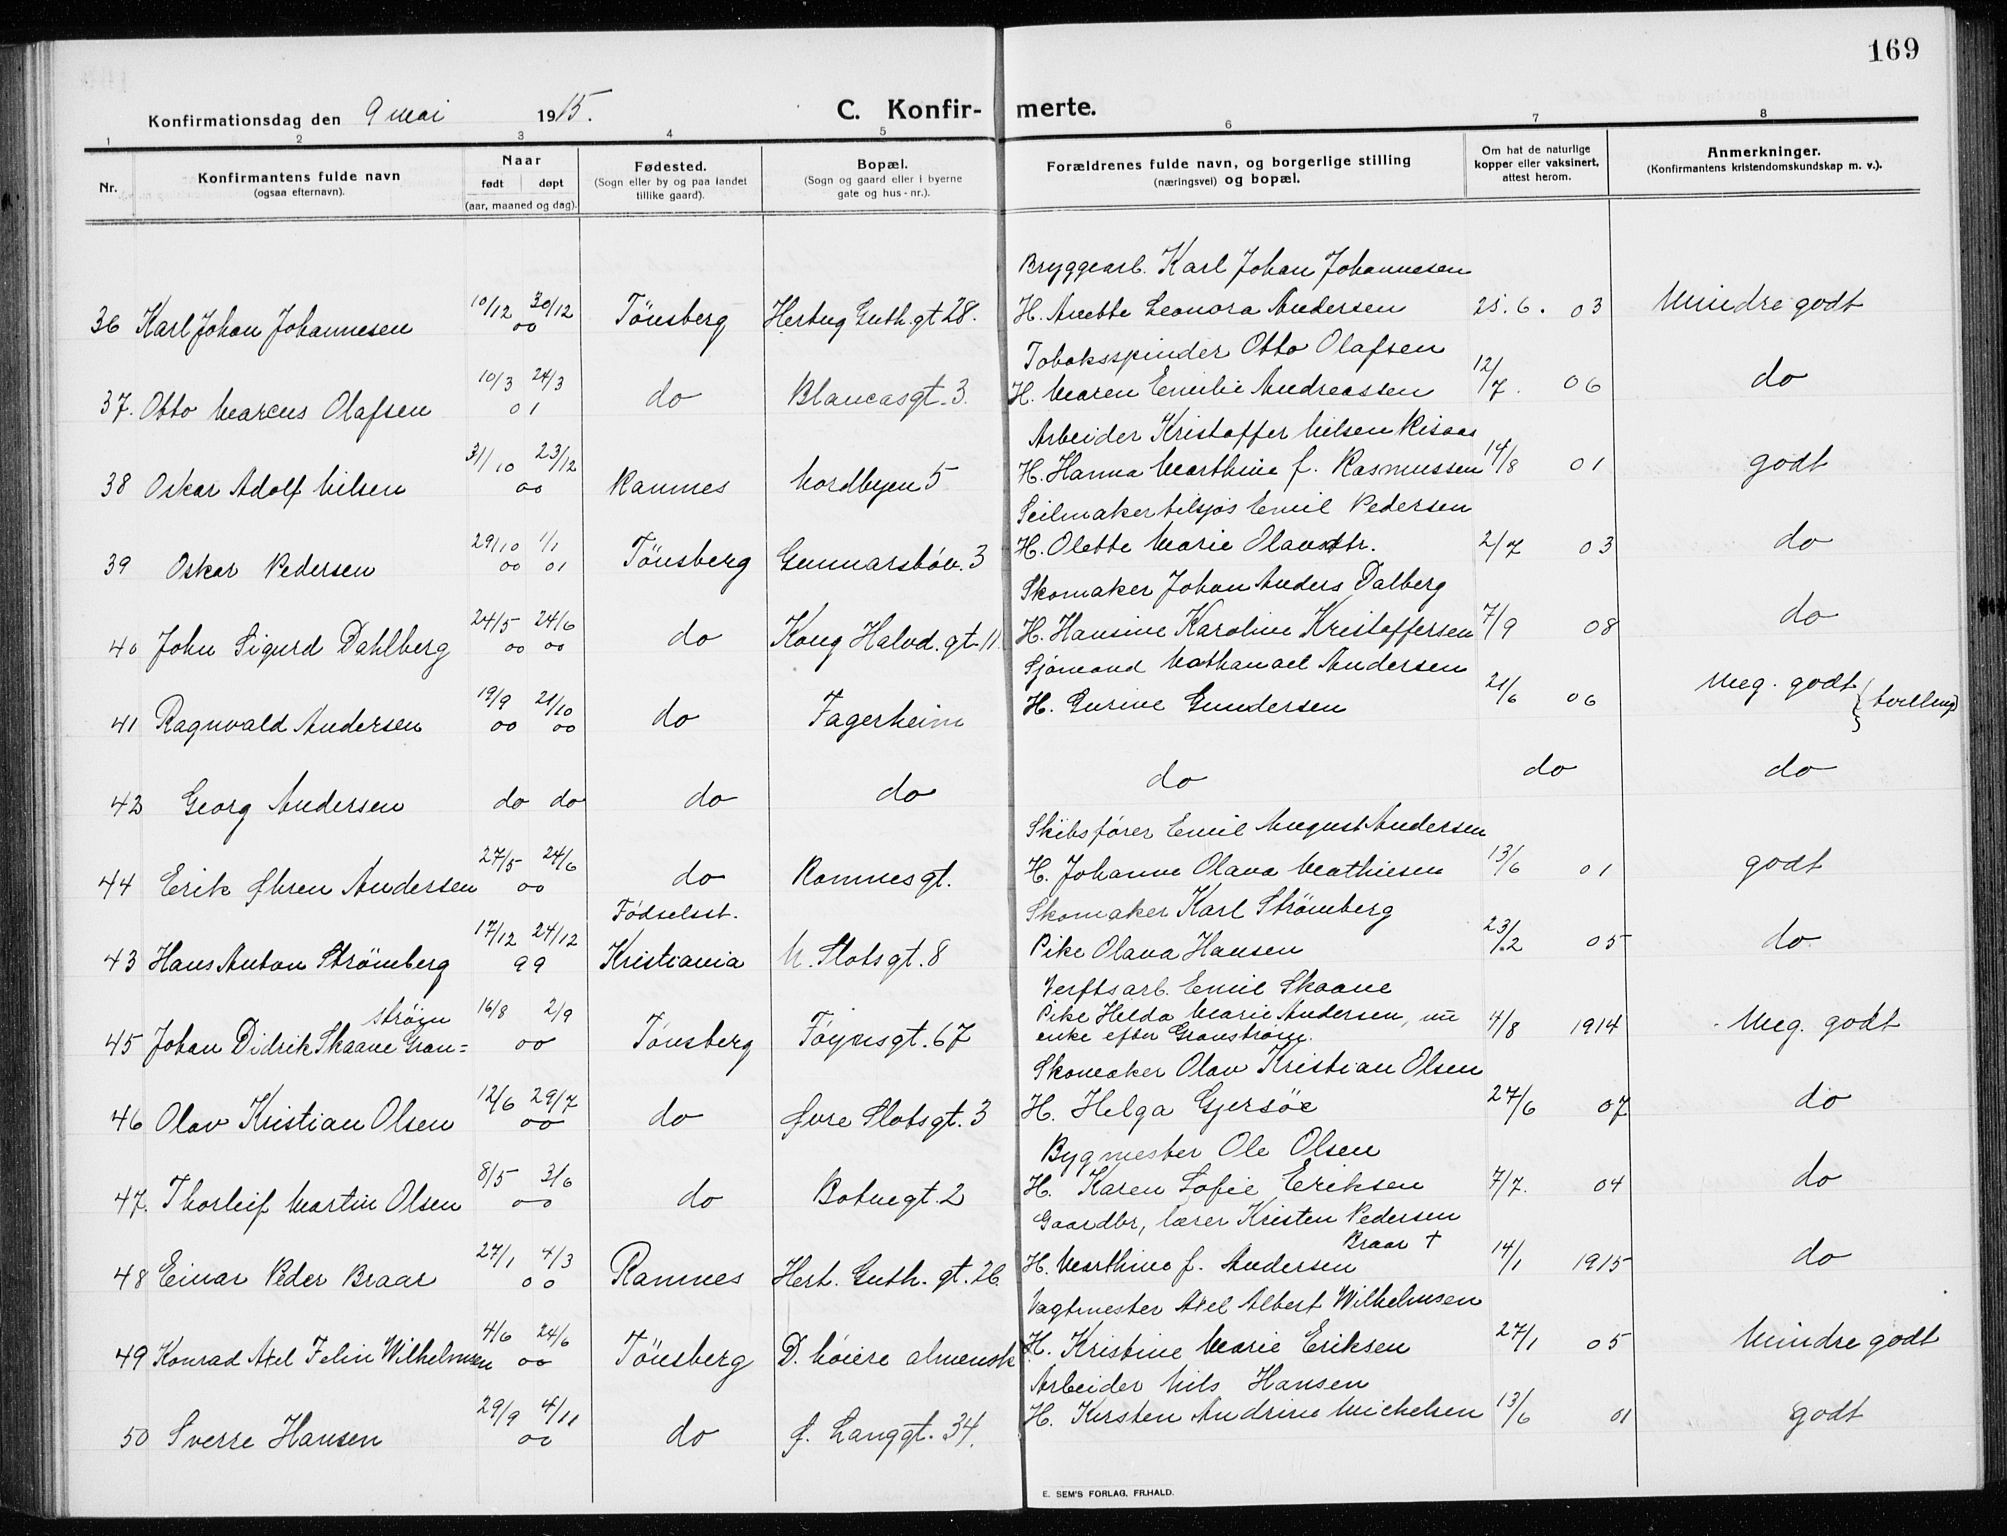 169
Konfirmationsdag den 9 mai 1915.
C. Konfir- merte.
1 2 3 4 5 6 7 8
Nr.
Konfirmantens fulde navn (ogsaa efternavn).
Naar født døpt (aar, maaned og dag).
Fødested. (Sogn eller by og paa landet tillike gaard).
Bopæl. (Sogn og gaard eller i byerne gate og hus-nr.).
Forældrenes fulde navn, og borgerlige stilling (næringsvei) og bopæl.
Om hat de naturlige kopper eller vaksinert, attest herom.
Anmerkninger. (Konfirmantens kristendomskundskap m. v.).
Bryggearb. Karl Johan Johannesen
36 Karl Johan Johannesen 10/12 30/12 00 Tönsberg Hertug Guth. gt 28. H. Anette Leonora Andersen 25. 6. 03 Mindre godt
Tobaksspinder Otto Olafsen
37. Otto Marcus Olafsen 10/3 24/3 01 do Blancasgt. 3. H. Maren Emilie Andreassen 12/7. 06 do
Arbeider Kristoffer Nilsen Risaas
38 Oskar Adolf Nilsen 31/10 23/12 00 Ramnes Nordbyen 5 H. Hanna Marthine f. Rasmussen 14/8 01 godt
Seilmaker tilsjøs Emil Pedersen
39 Oskar Pedersen 29/10 00 1/1 01 Tönsberg Gunnarsböv. 3 H. Olette Marie Olavsdtr. 2/7 03 do
Skomaker Johan Anders Dalberg
40 John Sigurd Dahlberg 24/5 00 24/6 00 do Kong Halvd. gt. 11. H. Hansine Karoline Kristoffersen 7/9 08 do
Sjømand Nathanael Andersen
41 Ragnvald Andersen 19/9 00 21/10 00 do Fagerheim H. Gurine Gundersen 21/6 06 Meg. godt
42 Georg Andersen do do do do do do do
Skibsfører Emil August Andersen
44 Erik Øhren Andersen 27/5 24/6 00 do Ramnesgt. H. Johanne Olava Mathiesen 13/6 01 godt
Födselsst. Skomaker Karl Strömberg
43 Hans Anton Strömberg 17/12 24/12 99 Kristiania N. Slotsgt. 8 Pike Olava Hansen 23/2 05 do
Verftsarb. Emil Skaane
45 Johan Didrik Skaane Gran=strøm 16/8 2/9 00 Tönsberg Föynsgt. 67 Pike Helda Marie Andersen, nu enke efter Granstrøm. 4/8 1914 Meg. godt
Skomaker Olav Kristian Olsen
46 Olav Kristian Olsen 12/6 29/7 00 do Øvre Slotsgt. 3 H. Helga Gjersöe 27/6 07 do
Bygmester Ole Olsen
47. Thorleif Martin Olsen 8/5 3/6 00 do Botnegt. 2 H. Karen Sofie Eriksen 7/7. 04 do
Gaardbr, lærer Kristen Pedersen Braar †
48 Einar Peder Braar 27/1 4/3 00 Ramnes Hert. Guth. gt. 26. H. Marthine f. Andersen 14/1 1915 do
Vagtmester Axel Albert Wilhelmsen
49 Konrad Axel Felin Wilhelmsen 4/6 24/6 00 Tönsberg D. höiere almensk H. Kristine Marie Eriksen 27/1 05 Mindre godt
Arbeider Nils Hansen
50 Sverre Hansen 29/9 4/11 00 do Ø. Langgt. 34. H. Kirsten Andrine Michelsen 13/6 01 godt
E. SEM'S FORLAG, FR.HALD.